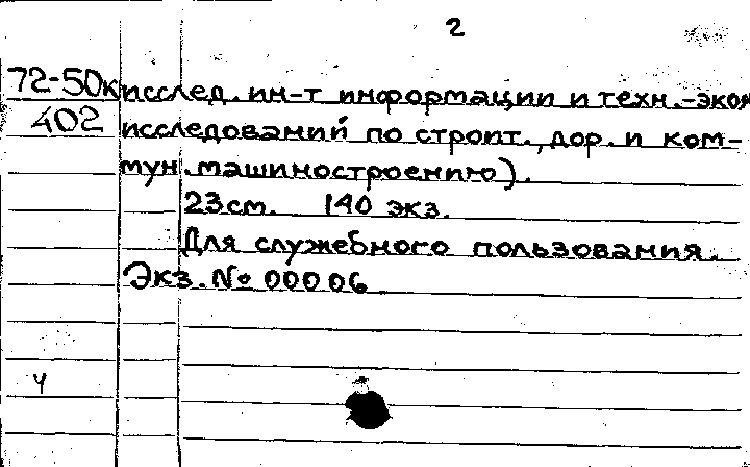 2
72-50к исслед. ин-т информации и техн.-экон
402 исследований по строит., дор. и ком-
мун. машиностроению).
23см. 140 экз.
Для служебного пользования.
Экз. № 00006
Ч